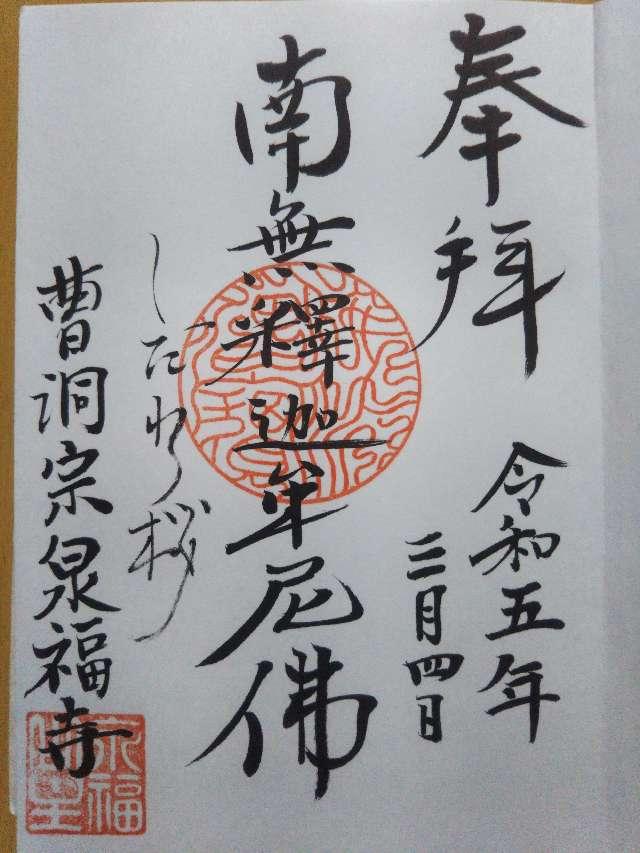 奉拜
令和五年
三月四日
南無釋迦牟尼佛
しだれ桜
曹洞宗泉福寺